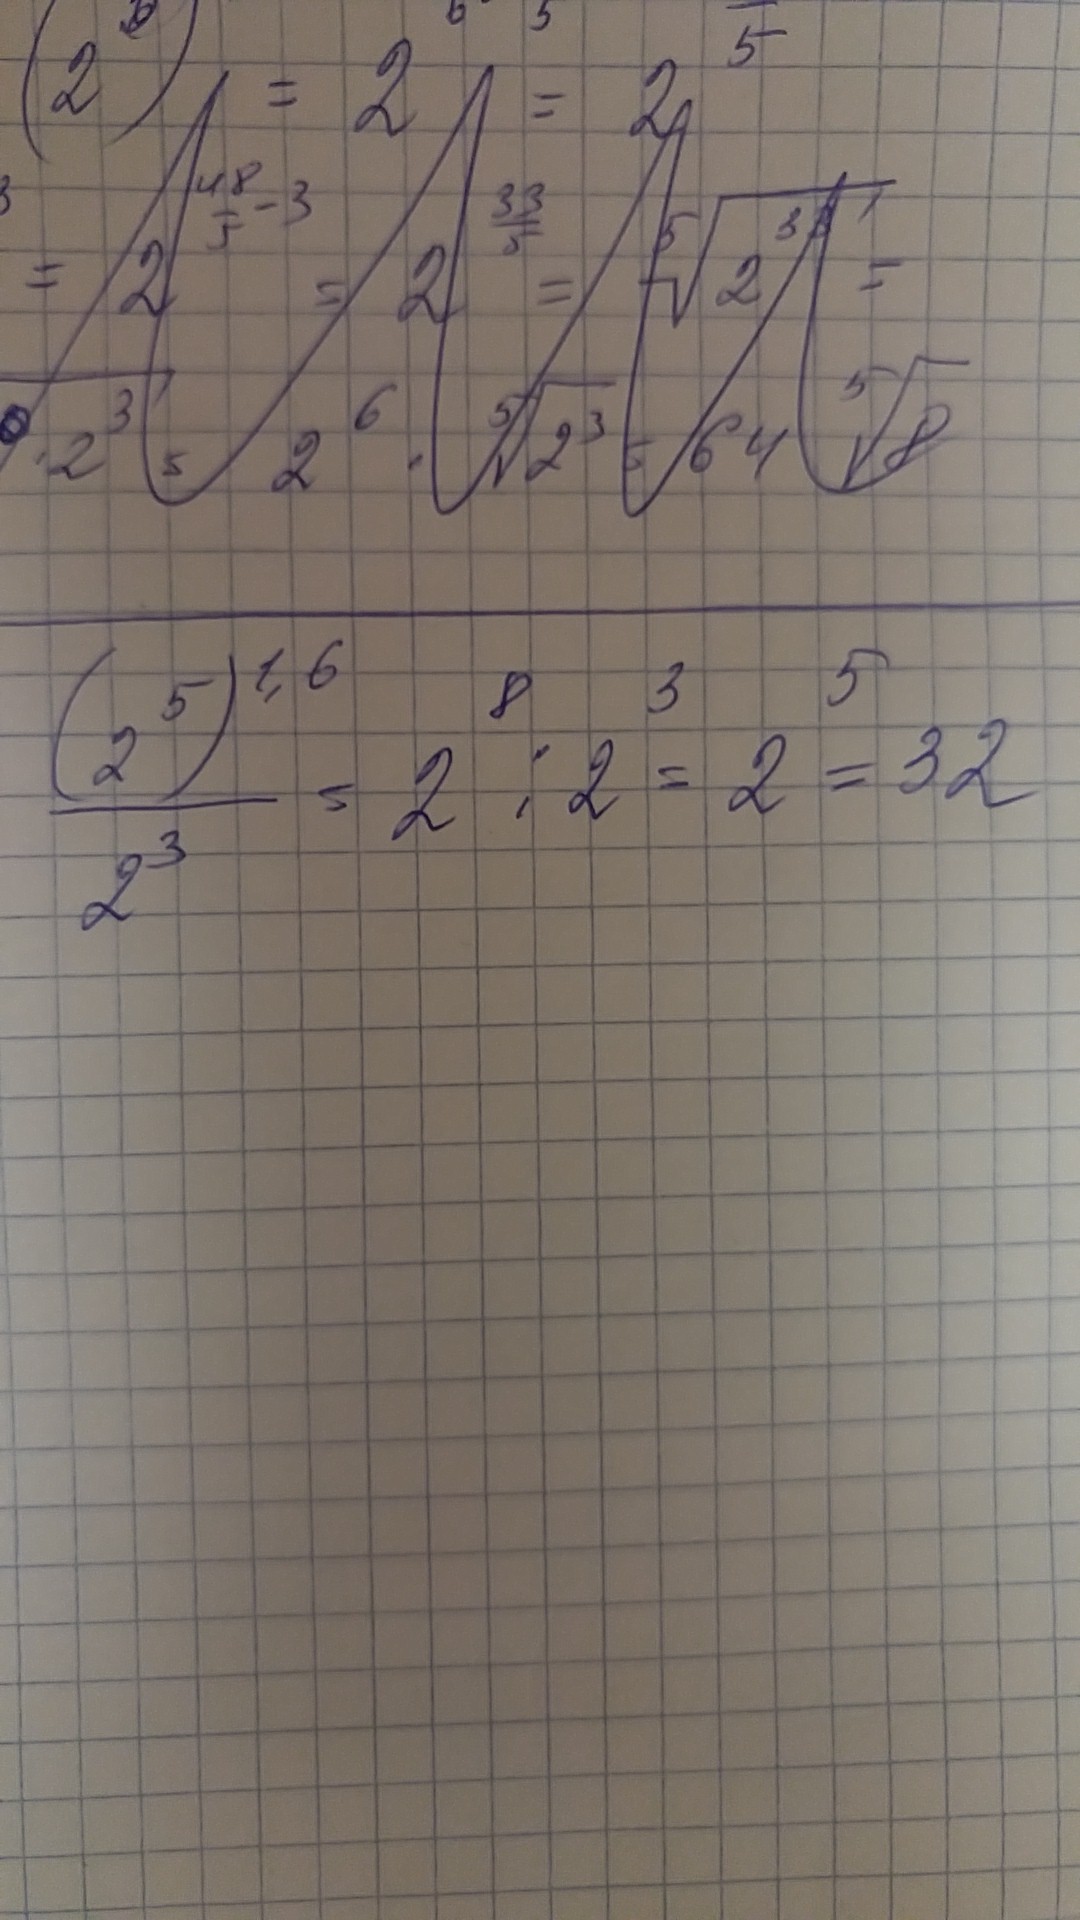 (2^6) = 2^6 5 = 2^5
3 = 2^(48/5 - 3) = 2^(33/5) = ⁵√2^33 =
· 2^3 = 2^6 · ⁵√2^3 = 64 ⁵√8
(2^5)^1,6 / 2^3 = 2^8 : 2^3 = 2^5 = 32